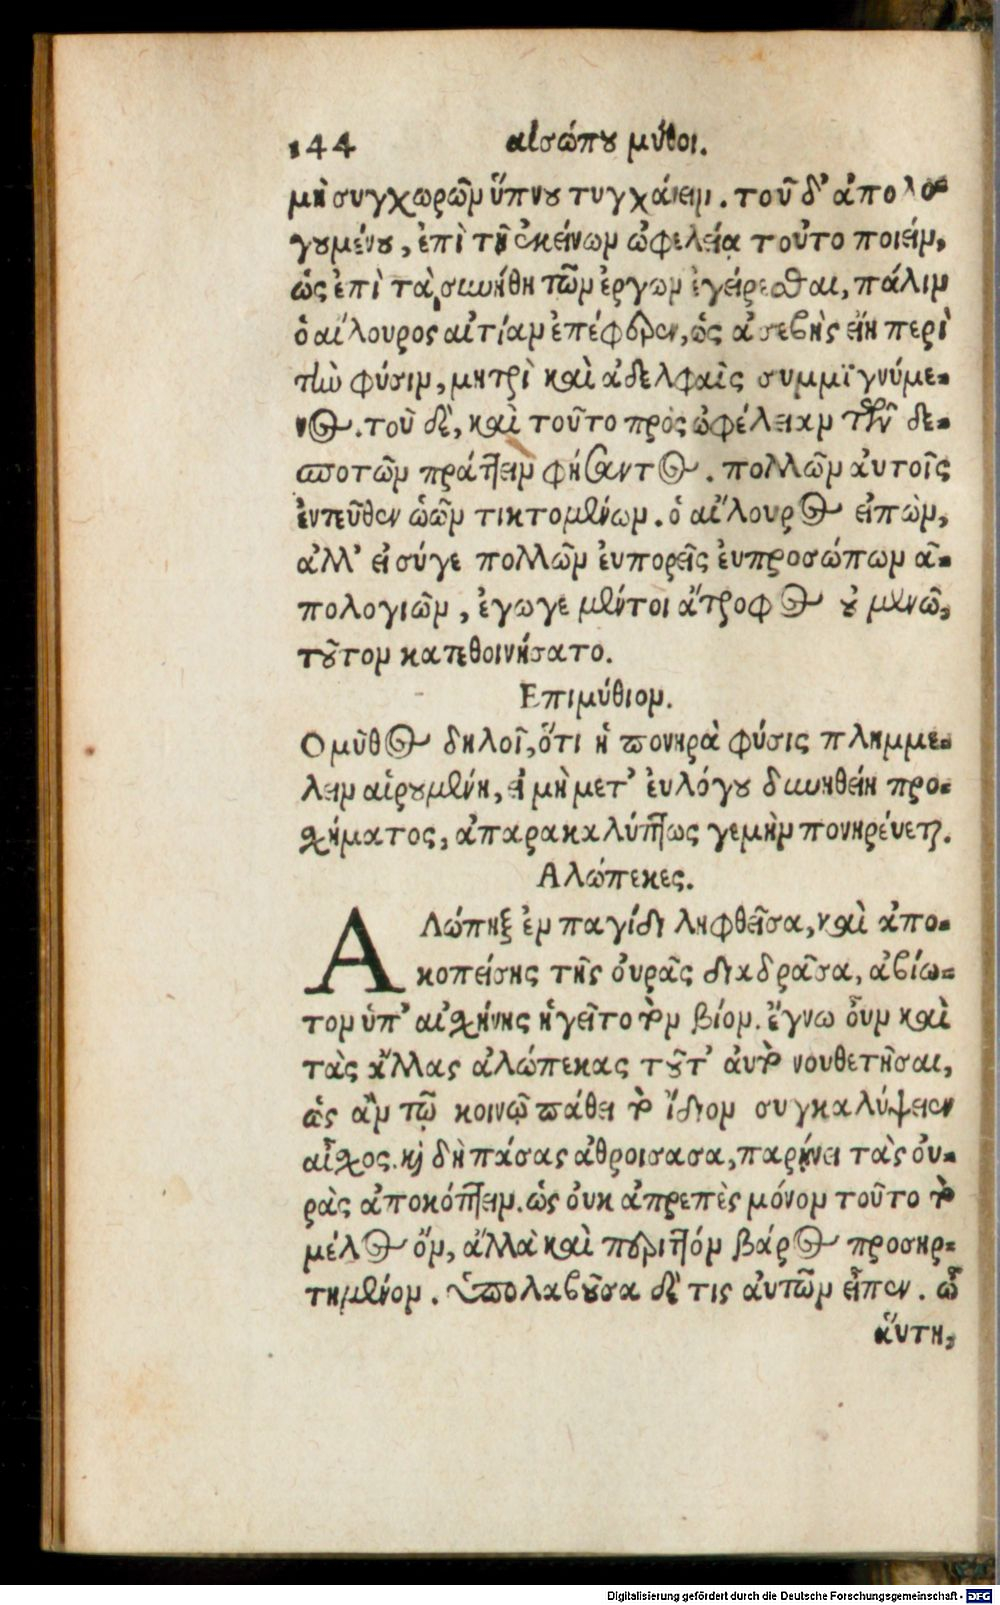 144 αἰσώπου μύθοι.
μὴ συγχωρῶν ὕπνου τυγχάνειν. τοῦ δ' ἀπολο-
γουμένου, ἐπὶ τῇ ἐκείνων ὠφελείᾳ τοῦτο ποιεῖν,
ὡς ἐπὶ τὰ συνήθη τῶν ἔργων ἐγείρεσθαι, πάλιν
ὁ αἴλουρος αἰτίαν ἐπέφερεν, ὡς ἀσεβὴς εἴη περὶ
τὴν φύσιν, μητρὶ καὶ ἀδελφαῖς συμμιγνύμε-
νος. τοῦ δὲ, καὶ τοῦτο πρὸς ὠφέλειαν τῶν δε-
σποτῶν πράττειν φήσαντος. πολλῶν αὐτοῖς
ἐντεῦθεν ὠῶν τικτομένων. ὁ αἴλουρος εἰπὼν,
ἀλλ' εἰ σύγε πολλῶν ἐυπορεῖς ἐυπροσώπων ἀ-
πολογιῶν, ἐγωγε μέντοι ἄτροφος οὐ μενῶ,
τοῦτον κατεθοινήσατο.
Επιμύθιον.
Ο μῦθος δηλοῖ, ὅτι ἡ πονηρὰ φύσις πλημμε-
λειν αἱρουμένη, εἰ μὴ μετ' ἐυλόγου δυνηθείη προ-
σχήματος, ἀπαρακαλύπτως γεμὴν πονηρέυεται.
Αλώπεκες.
ΑΛώπηξ ἐν παγίδι ληφθεῖσα, καὶ ἀπο-
κοπείσης τῆς οὐρᾶς διαδρᾶσα, ἀβίω-
τον ὑπ' αἰσχύνης ἡγεῖτο τὸν βίον. ἔγνω οὖν καὶ
τὰς ἄλλας ἀλώπεκας τοῦτ' ἀυτὸ νουθετῆσαι,
ὡς ἂν τῷ κοινῷ πάθει τὸ ἴδιον συγκαλύψειεν
αἶσχος. καὶ δὴ πάσας ἀθροισασα, παρῄνει τὰς ὀυ-
ρὰς ἀποκόπτειν. ὡς ὀυκ ἀπρεπὲς μόνον τοῦτο τὸ
μέλος ὄν, ἄλλὰ καὶ περιττόν βάρος προσηρ-
τημένον. ὑπολαβοῦσα δέ τις ἀυτῶν εἶπεν. ὦ
ἅυτη,
Digitalisierung gefördert durch die Deutsche Forschungsgemeinschaft - DFG